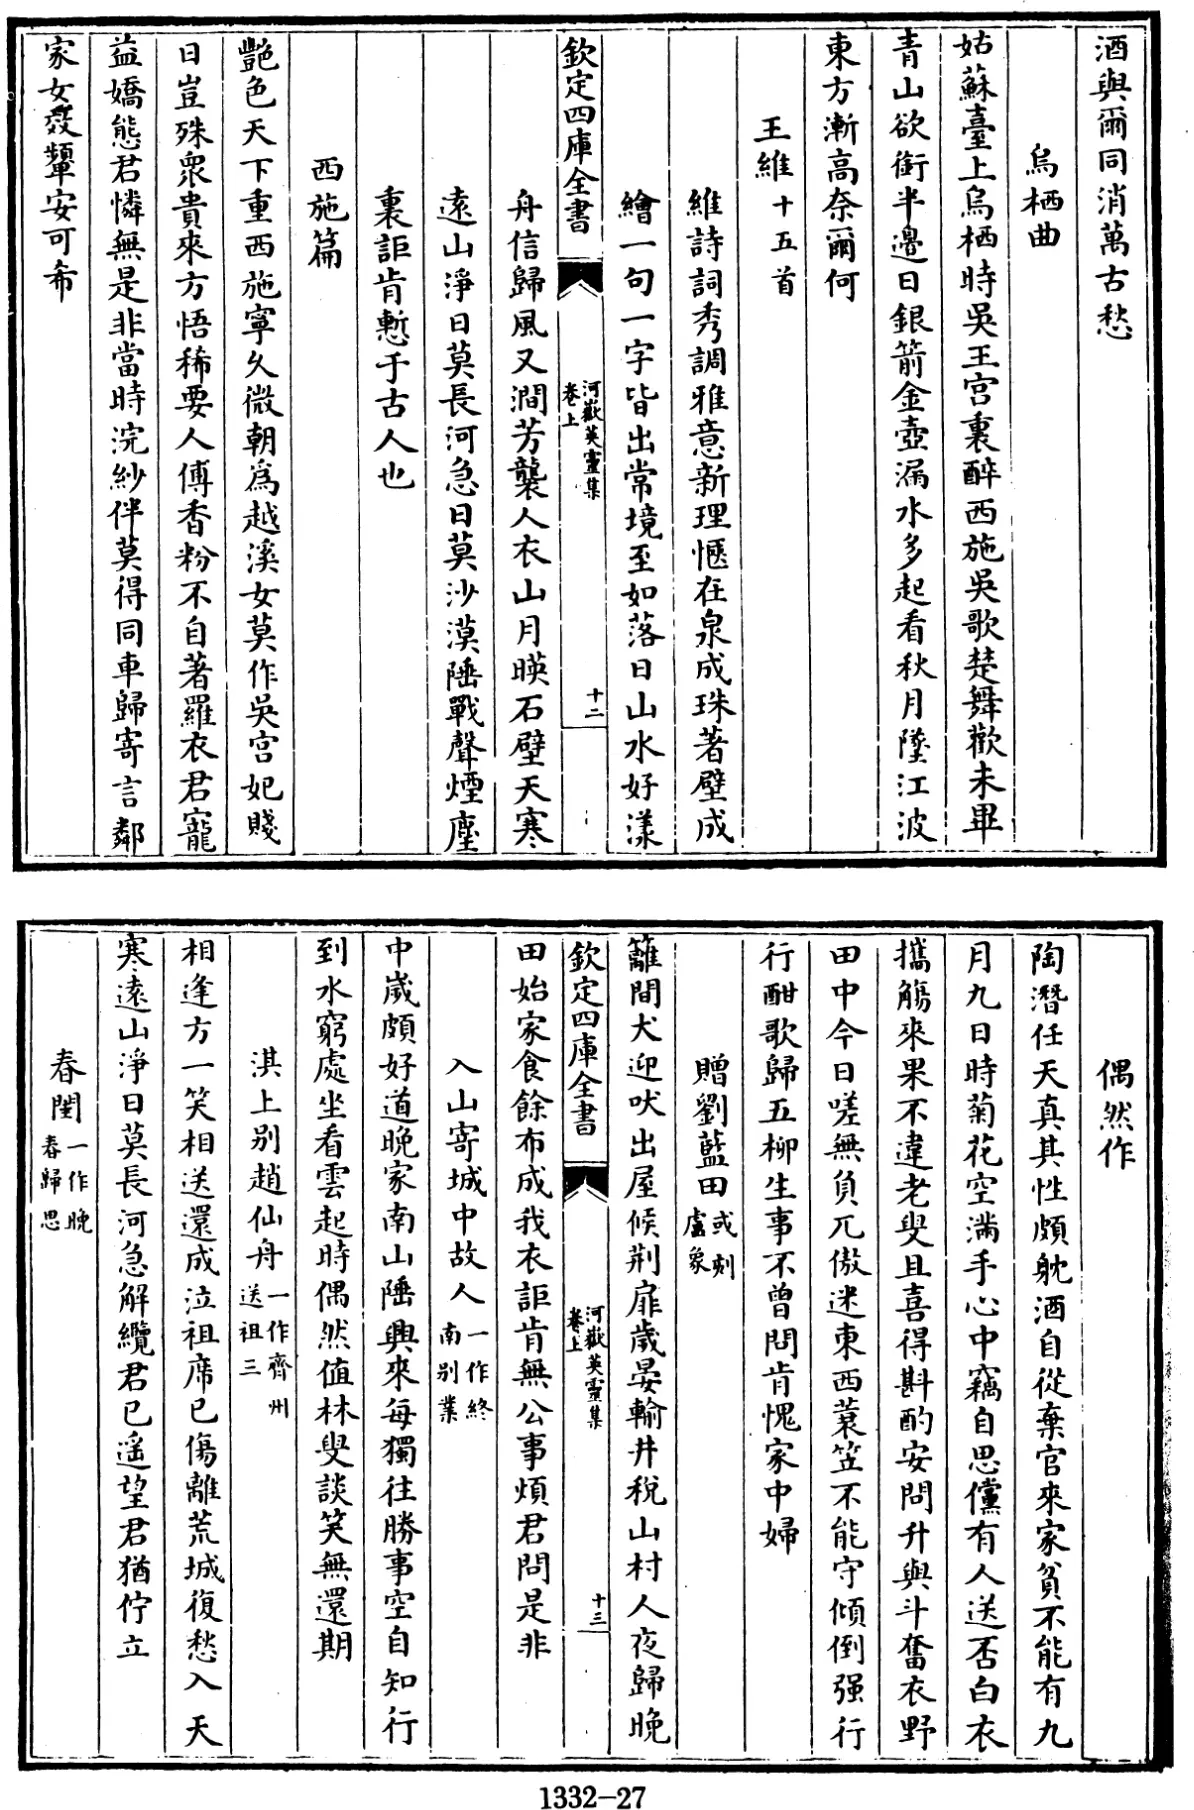 酒與爾同消萬古愁
烏栖曲
姑蘇臺上烏栖時吳王宫裏醉西施吳歌楚舞歡未畢
青山欲銜半邊日銀箭金壺漏水多起看秋月墜江波
東方漸高奈爾何
王維十五首
維詩詞秀調雅意新理愜在泉成珠著壁成
繪一句一字皆出常境至如落日山水好漾
欽定四庫全書
河嶽英靈集
卷上
十二
舟信歸風又澗芳襲人衣山月暎石壁天寒
遠山淨日莫長河急日莫沙漠陲戰聲煙塵
裏詎肯慙于古人也
西施篇
艷色天下重西施寧久微朝爲越溪女莫作吳宫妃賤
日豈殊衆貴來方悟稀要人傅香粉不自著羅衣君寵
益嬌態君憐無是非當時浣紗伴莫得同車歸寄言鄰
家女效顰安可希
偶然作
陶潛任天真其性頗躭酒自從棄官來家貧不能有九
月九日時菊花空滿手心中竊自思儻有人送否白衣
攜觴來果不違老叟且喜得斟酌安問升與斗奮衣野
田中今日嗟無負兀傲迷東西蓑笠不能守傾倒强行
行酣歌歸五柳生事不曾問肯愧家中婦
贈劉藍田或刻盧象
籬間犬迎吠出屋候荆扉歲晏輸井稅山村人夜歸晚
欽定四庫全書
河嶽英靈集
卷上
十三
田始家食餘布成我衣詎肯無公事煩君問是非
入山寄城中故人一作終南別業
中歲頗好道晚家南山陲興來每獨往勝事空自知行
到水窮處坐看雲起時偶然值林叟談笑無還期
淇上別趙仙舟一作齊州送祖三
相逢方一笑相送還成泣祖席已傷離荒城復愁入天
寒遠山淨日莫長河急解纜君已遥望君猶佇立
春閨一作晚春歸思
1332-27